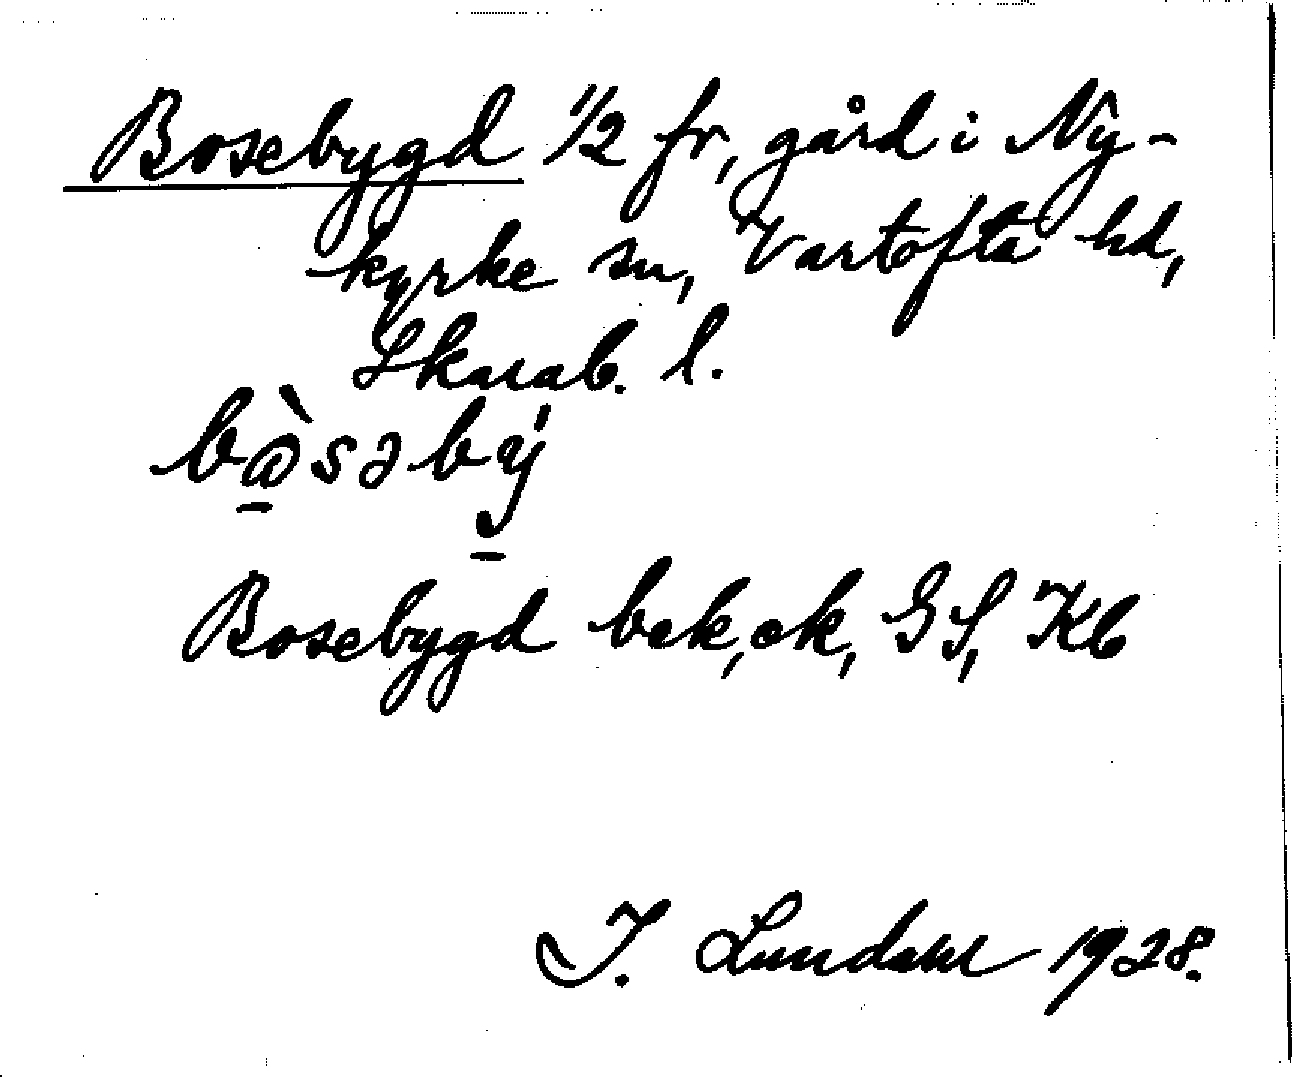 Bosebygd 1/2 fr, gård i Ny-
kyrke sn, Vartofta hd,
Skarab. l.
bòsəbý
Bosebygd bek, ek, GS, Kb
I. Lundahl 1928.